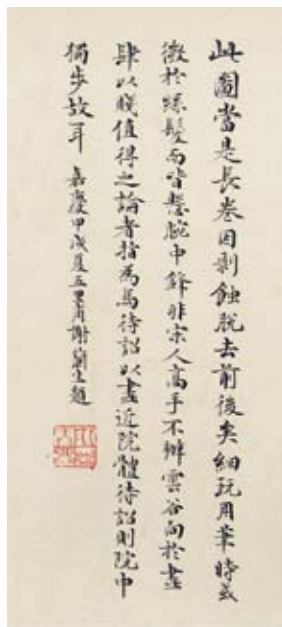 此圖當是長卷因剥蝕脫去前後矣細玩用筆時或
微於絲髮而皆懸腕中鋒非宋人高手不辦雲谷向於畫
肆以賤值得之論者指為馬待詔以畫近院體待詔則院中
獨步故耳 嘉慶甲戌夏五里甫謝蘭生題